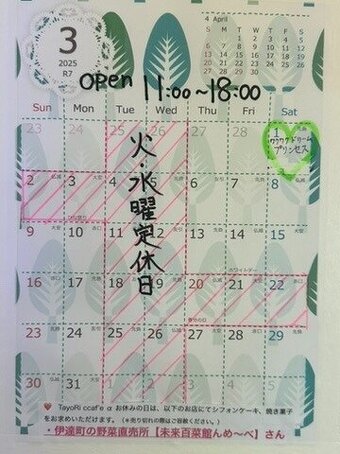 3
2025
R7
4 April
S M T W T F S
1 2 3 4 5
6 7 8 9 10 11 12
13 14 15 16 17 18 19
20 21 22 23 24 25 26
27 28 29 30
OPEN 11:00~18:00
Sun Mon Tue Wed Thu Fri Sat
23 24 25 26 27 28 1
ワクワクドリーム
プリンセス
火・水曜定休日
2 3 4 5 6 7 8
ひな祭り
9 10 11 12 13 14 15
ホワイトデー
16 17 18 19 20 21 22
春分の日
23 24 25 26 27 28 29
30 31
TayoRi ccaFe α お休みの日は、以下のお店にてシフォンケーキ、焼き菓子
をお求めいただけます。（※売り切れの際はご容赦ください。）
・伊達町の野菜直売所【未来百菜館んめ〜べ】さん